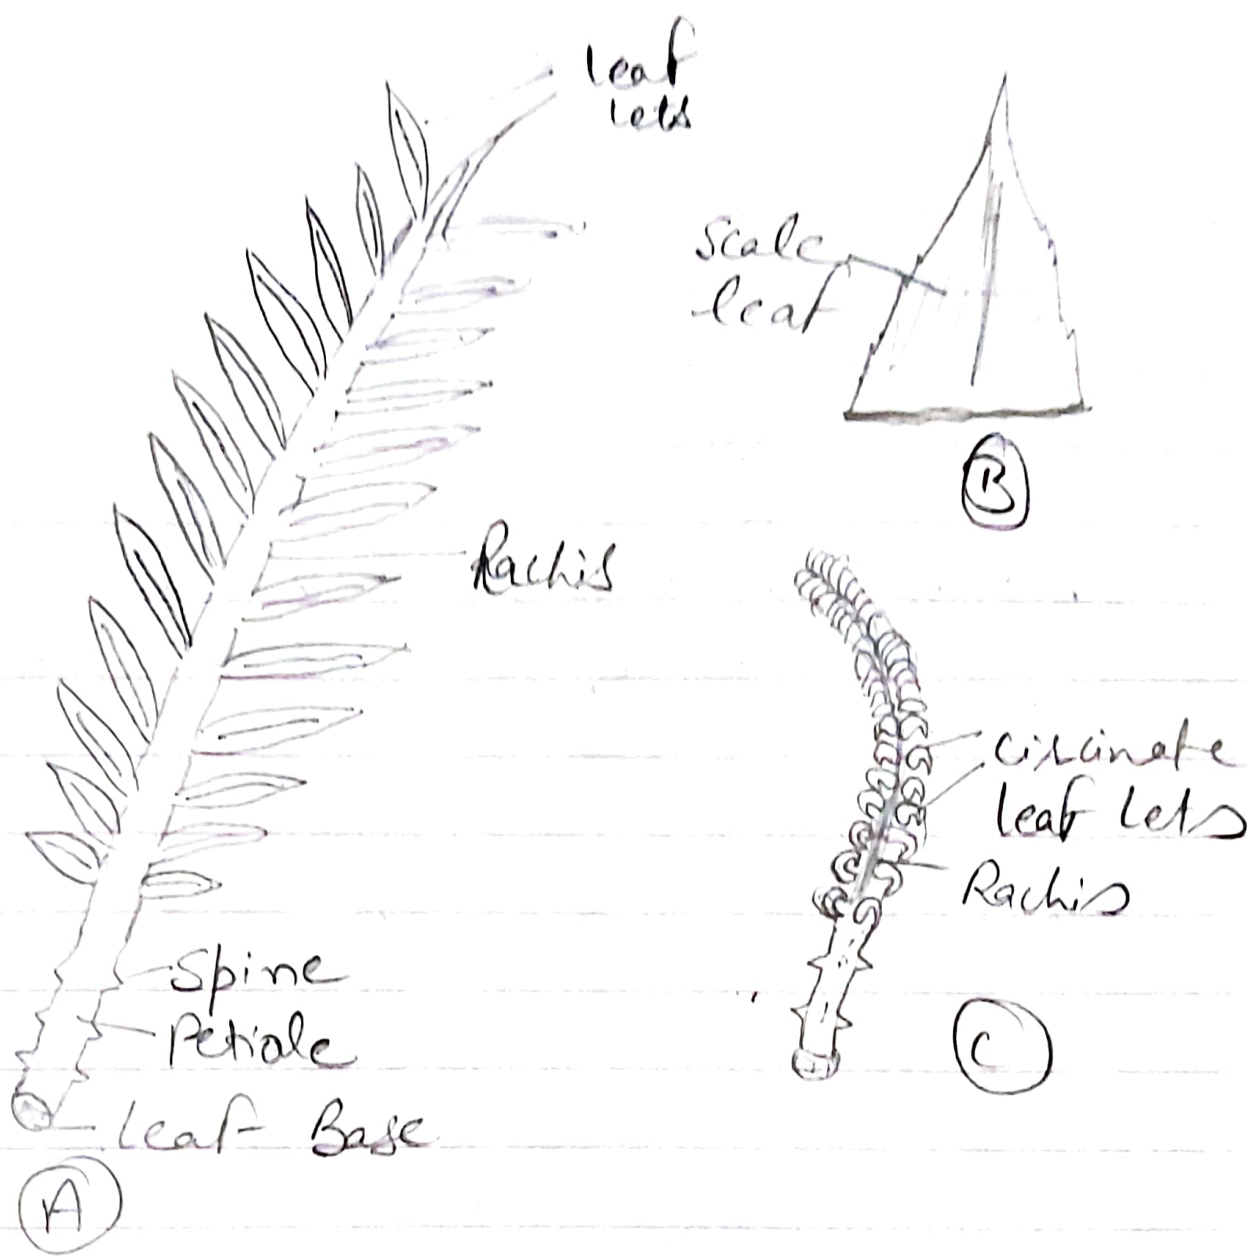 leaf
lets
Scale
leaf
B
Rachis
Circinate
leaf lets
Rachis
Spine
Petiole
C
Leaf Base
A